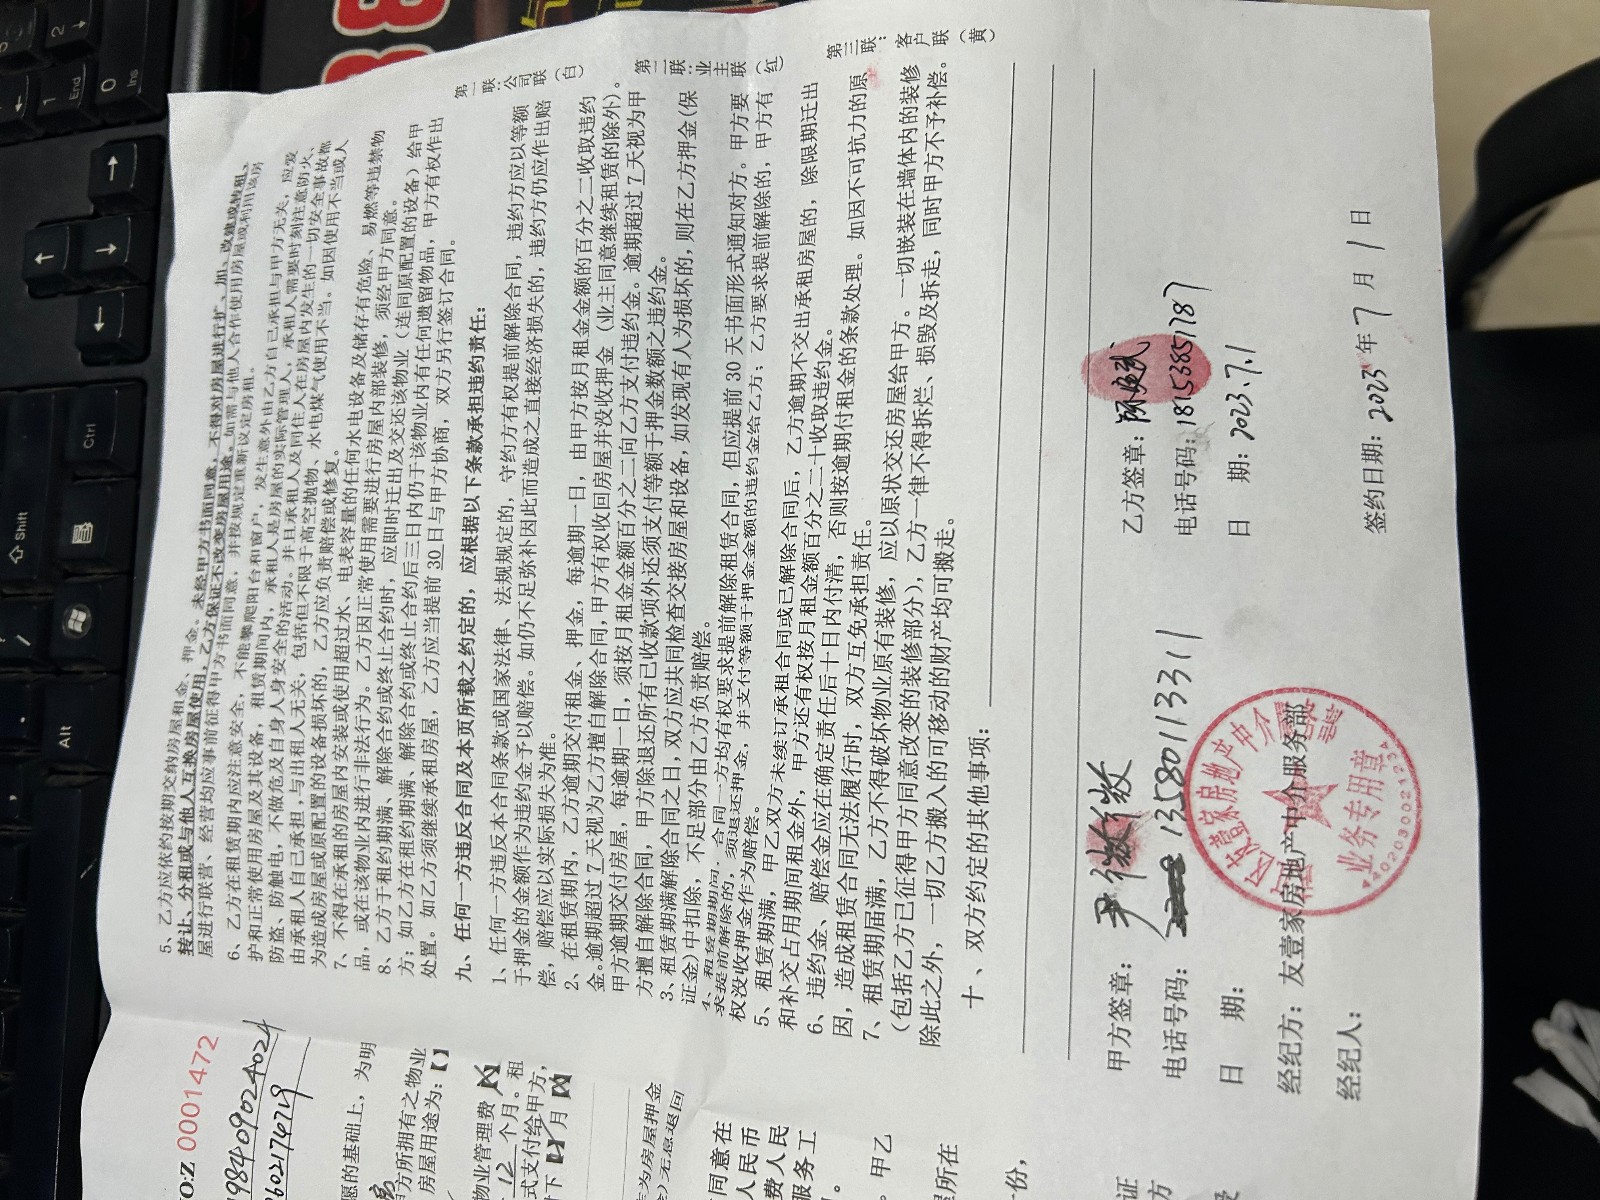 5、乙方应依约按期交纳房屋租金、押金。未经甲方书面同意，不得对房屋进行扩、加、改建或转租、
转让、分租或与他人互换房屋使用，乙方保证不改变房屋用途。如需与他人合作使用房屋或利用该房
屋进行联营、经营均应事前征得甲方书面同意，并按规定重新议定房租。
6、乙方在租赁期内应注意安全，不能攀爬阳台和窗户，发生意外由乙方自己承担与甲方无关，应爱
护和正常使用房屋及其设备，租赁期间内，承租人是房屋的实际管理人，承租人需要时刻注意防火、
防盗、防触电，不做危及自身人身安全的活动。并且承租人及同住人在房屋内发生的一切安全事故都
由承租人自己承担，与出租人无关，包括但不限于高空抛物、水电煤气使用不当。如因使用不当或人
为造成房屋或原配置的设备损坏的，乙方应负责赔偿或修复。
7、不得在承租的房屋内安装或使用超过水、电表容量的任何水电设备及储存有危险、易燃等违禁物
品，或在该物业内进行非法行为。乙方因正常使用需要进行房屋内部装修，须经甲方同意。
8、乙方于租约期满、解除合约或终止合约时，应即时迁出及交还该物业（连同原配置的设备）给甲
方；如乙方在租约期满、解除合约或终止合约后三日内仍于该物业内有任何遗留物品，甲方有权作出
处置。如乙方须继续承租房屋，乙方应当提前30日与甲方协商，双方另行签订合同。
九、任何一方违反合同及本页所载之约定的，应根据以下条款承担违约责任：
1、任何一方违反本合同条款或国家法律、法规规定的，守约方有权提前解除合同，违约方应以等额
于押金的金额作为违约金予以赔偿。如仍不足弥补因此而造成之直接经济损失的，违约方仍应作出赔
偿，赔偿应以实际损失为准。
2、在租赁期内，乙方逾期交付租金、押金，每逾期一日，由甲方按月租金金额的百分之二收取违约
金。逾期超过7天视为乙方擅自解除合同，甲方有权收回房屋并没收押金（业主同意继续租赁的除外）。
甲方逾期交付房屋，每逾期一日，须按月租金金额百分之二向乙方支付违约金。逾期超过7天视为甲
方擅自解除合同，甲方除退还所有已收款项外还须支付等额于押金数额之违约金。
3、租赁期满解除合同之日，双方应共同检查交接房屋和设备，如发现有人为损坏的，则在乙方押金(保
证金)中扣除，不足部分由乙方负责赔偿。
4、租赁期期间，合同一方均有权要求提前解除租赁合同，但应提前30天书面形式通知对方。甲方要
求提前解除的，须退还押金，并支付等额于押金金额的违约金给乙方；乙方要求提前解除的，甲方有
权没收押金作为赔偿。
5、租赁期满，甲乙双方未续订承租合同或已解除合同后，乙方逾期不交出承租房屋的，除限期迁出
和补交占用期间租金外，甲方还有权按月租金额百分之二十收取违约金。
6、违约金、赔偿金应在确定责任后十日内付清，否则按逾期付租金的条款处理。如因不可抗力的原
因，造成租赁合同无法履行时，双方互免承担责任。
7、租赁期届满，乙方不得破坏物业原有装修，应以原状交还房屋给甲方。一切嵌装在墙体内的装修
（包括乙方已征得甲方同意改变的装修部分），乙方一律不得拆烂、损毁及拆走，同时甲方不予补偿。
除此之外，一切乙方搬入的可移动的财产均可搬走。
十、双方约定的其他事项：
第一联：公司联（白）
第二联：业主联（红）
第三联：客户联（黄）
甲方签章：
电话号码：13580113311
日 期：
经纪方：友壹家房地产中介服务部
经纪人：
乙方签章：
电话号码：181538851787
日 期：2023.7.1
签约日期：2025年7月1日
友壹家房地产中介
业务专用章
NO:Z 0001472
198409024024
602174719
愿的基础上，为明
方所拥有之物业
房屋用途为：【】
物业管理费
12个月。租
式支付给甲方，
月
作为房屋押金
无息退回
同意在
人民币
费人民
服务工
甲乙
屋所在
份，
Shift
Ctrl
Alt
End
Ins
1
2
0